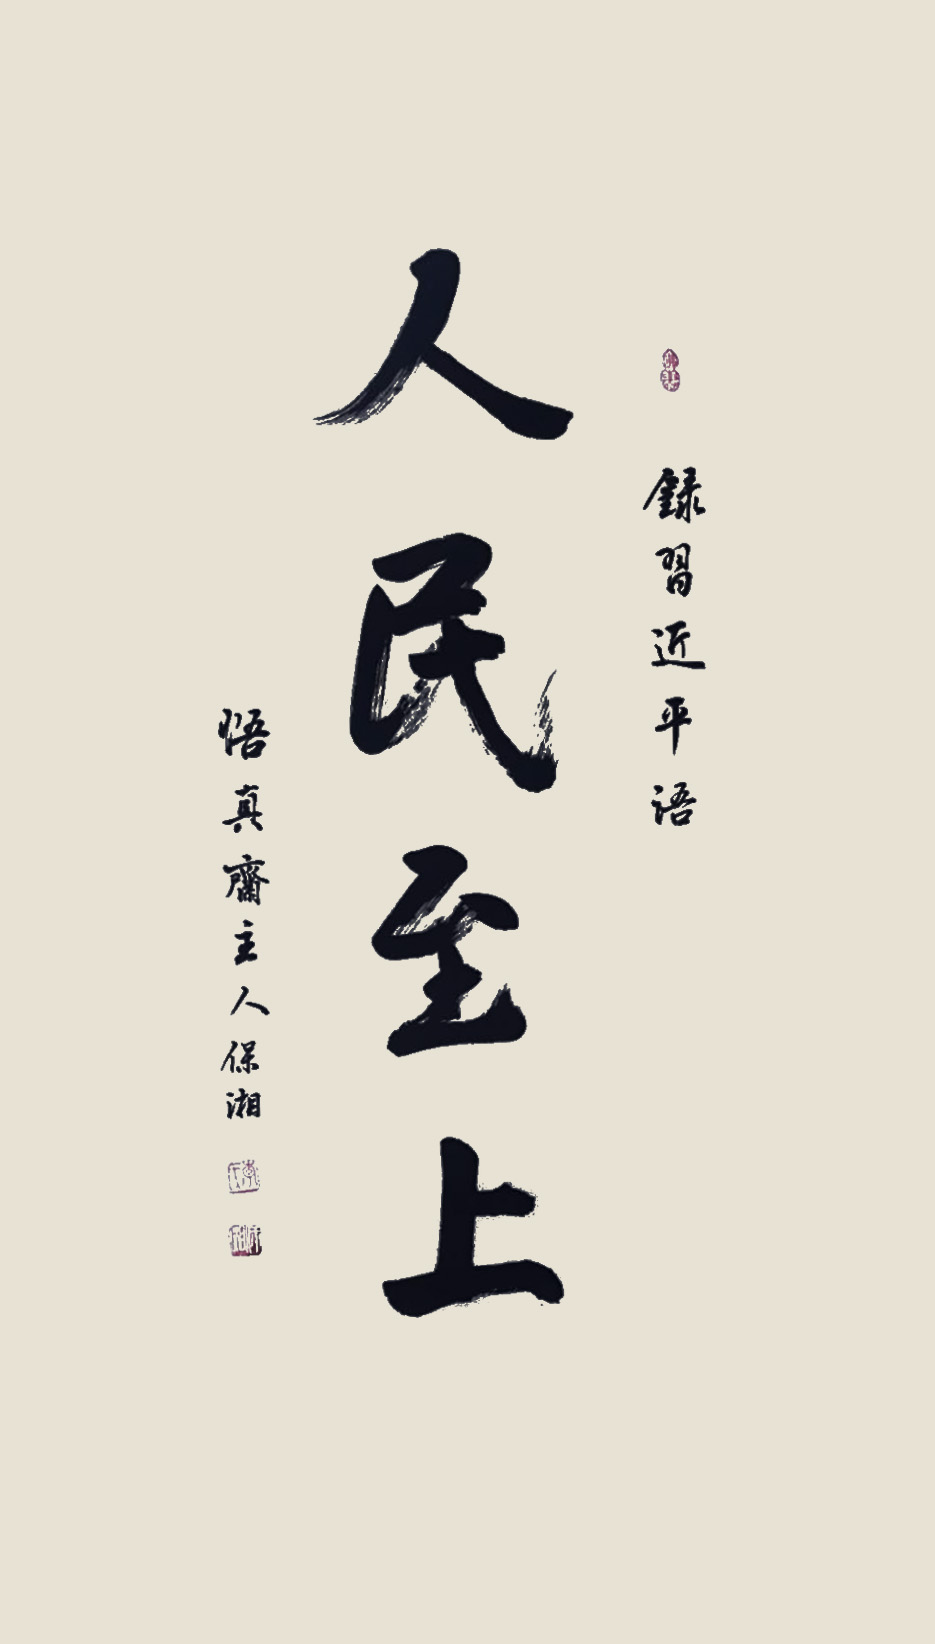 錄習近平语
人民至上
悟真齋主人保湘